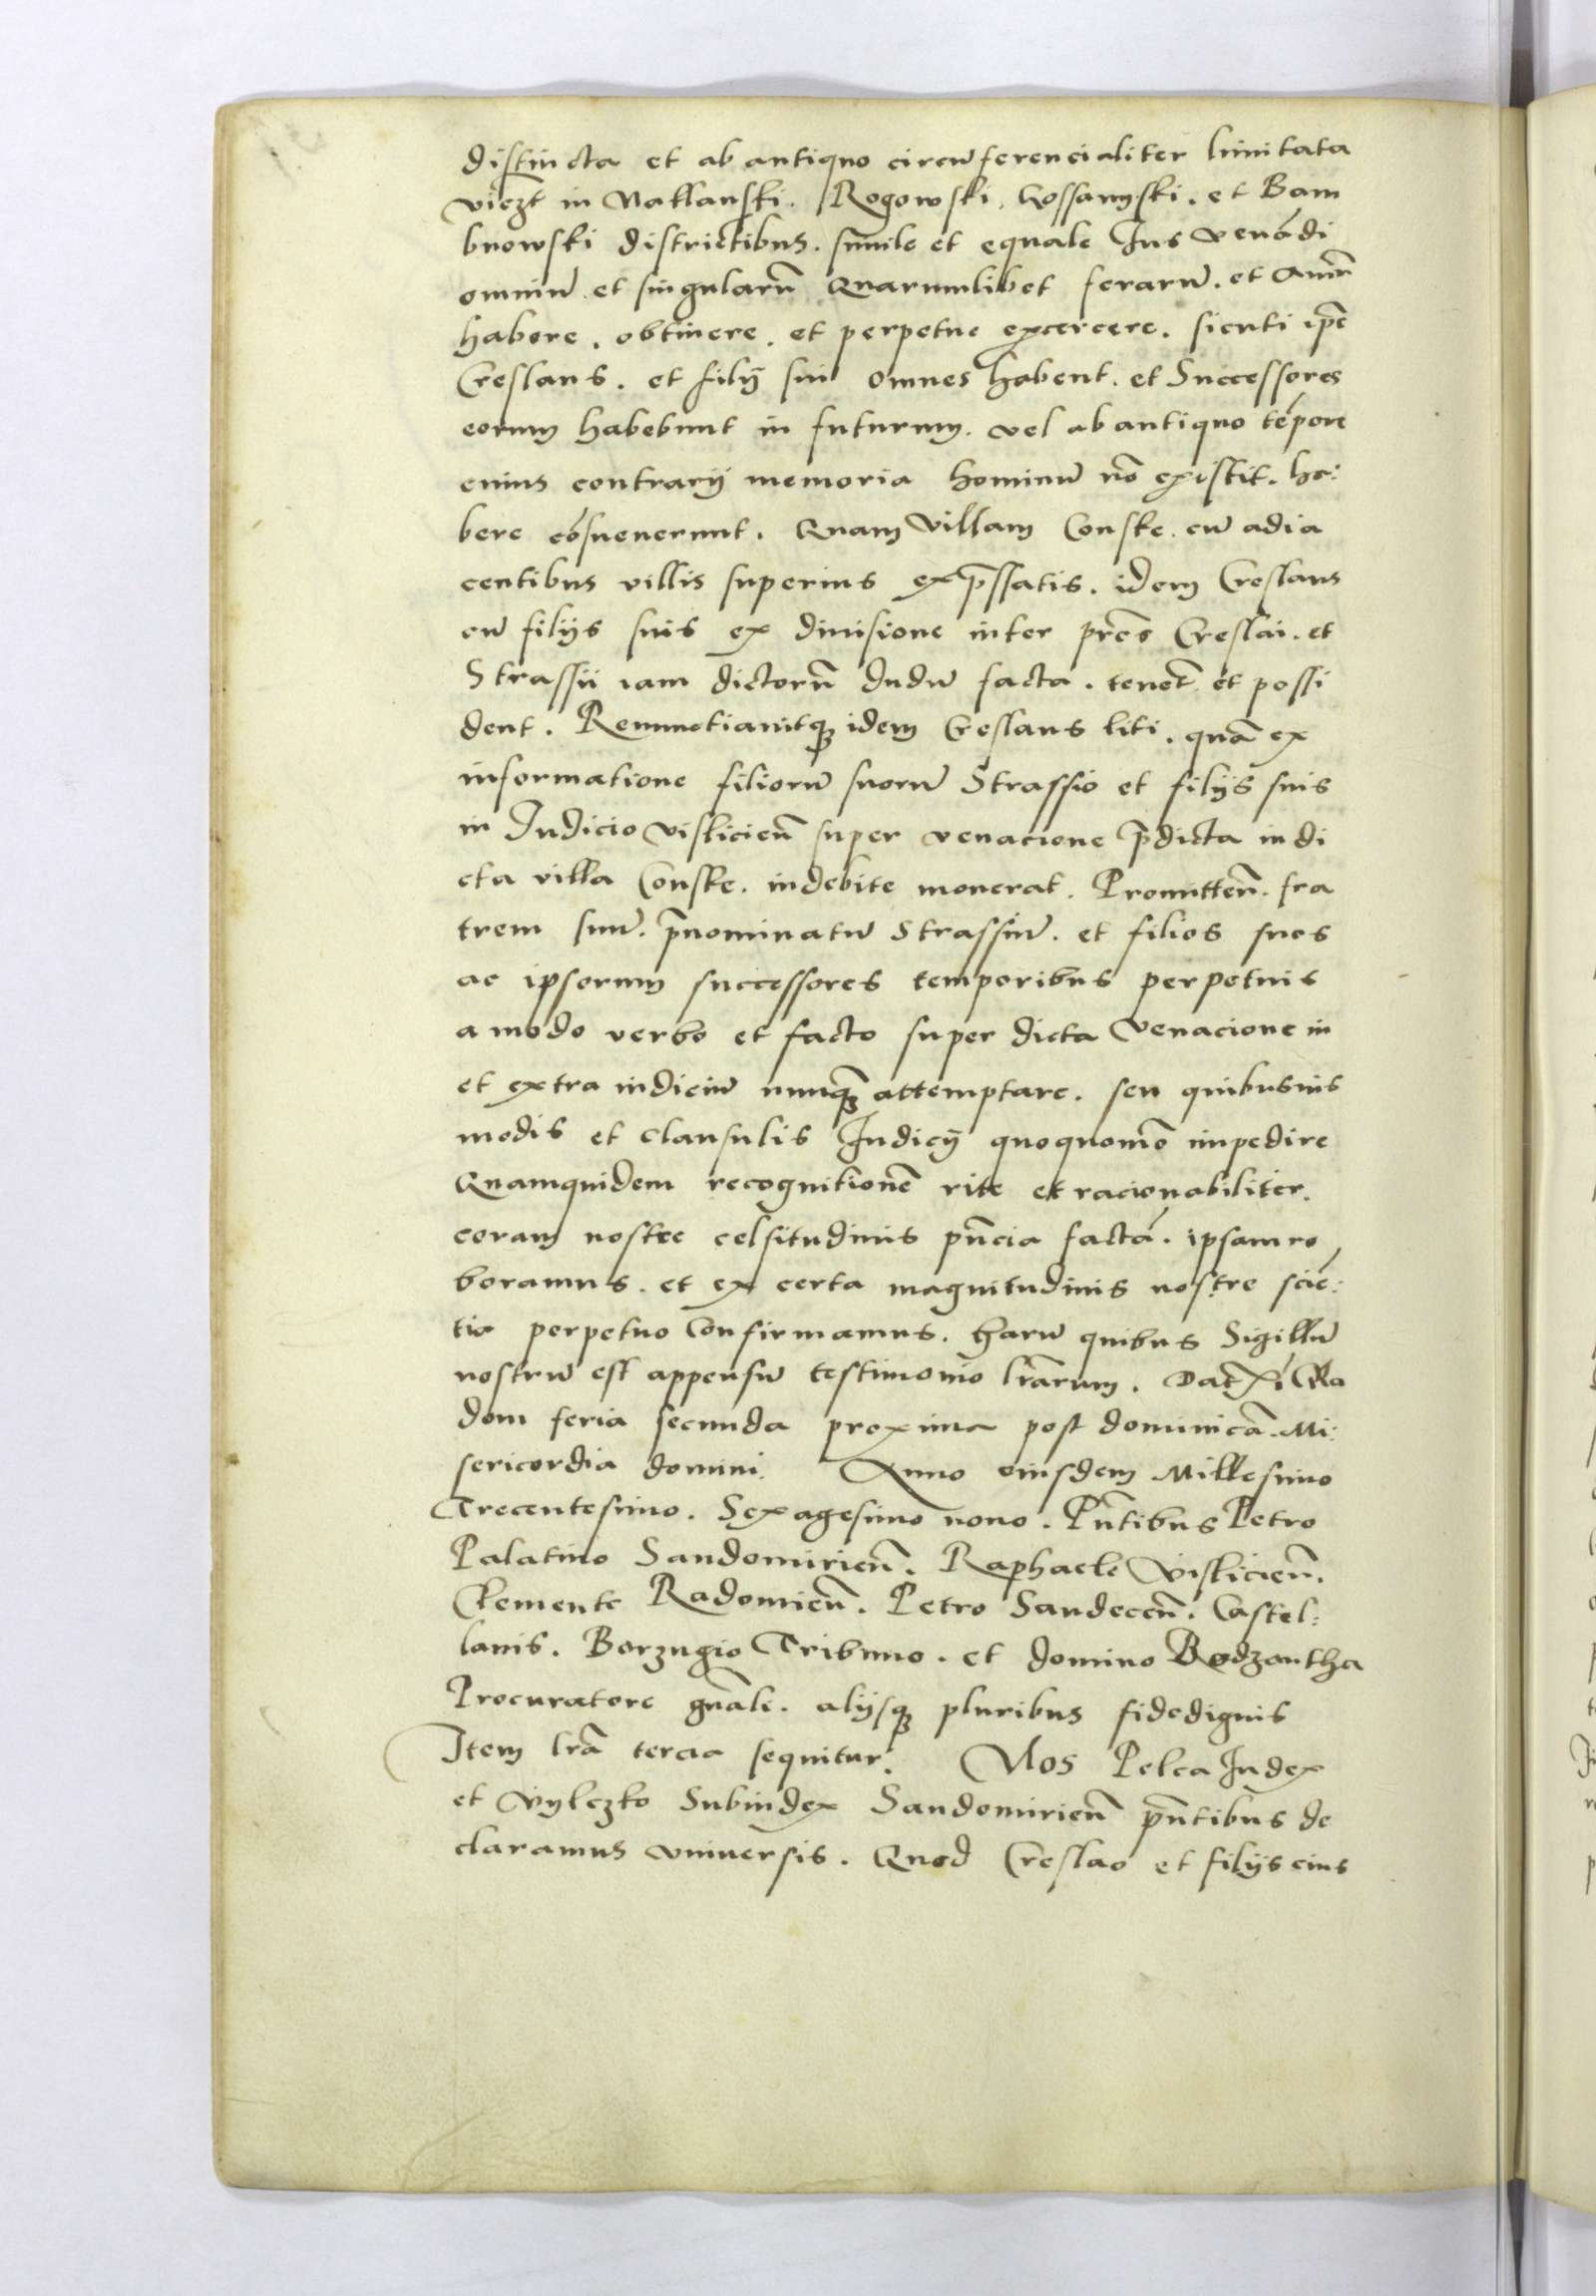 distincta et ab antiquo circūferencialiter limitata
viczt in Natlanski. Rogowski. Gossanyski. et Bam
bnowski districtibus. simile et equale Jus venādi
omniū et singularū Quarumlibet ferarū. et
habere. obtinere. et perpetue excercere. sicuti ip̄e
Creslaus. et filÿ sui omnes habent. et Successores
eorum habebunt in futurum. vel ab antiquo tēpore
cuius contrarÿ memoria hominū nō existit. ha:
bere cōsueuerunt. Quam villam Conske. cū adia
centibus villis superius exp̄ssatis. idem Creslaus
cū filÿs suis ex diuisione inter p̄res Creslai. et
Strassii iam dictorū dudū facta. tenēt et possi
dent. Renunctiauitq; idem Creslaus liti. quā ex
informatione filiorū suorū Strassio et filÿs suis
in Judicio visliciēn super venacione p̄dicta in di
cta villa Conske. indebite mouerat. Promittēn. fra
trem suū. p̄nominatū Strassiū. et filios suos
ac ipsorum successores temporibus perpetuis
a modo verbo et facto super dicta venacione in
et extra iudiciū nunq; attemptare. seu quibusuis
modis et clausulis Judicÿ quoquomō impedire
Quamquidem recognitionē rite et racionabiliter.
coram nostre celsitudinis p̄ncia factā. ipsam ro
boramus. et ex certa magnitudinis nostre sciē:
tia perpetuo Confirmamus. harū quibus Sigillū
nostrū est appensū testimonio l̄rarum. Ra
dom feria secunda proxima post dominicā. Mi:
sericordia domini. Anno eiusdem Millesimo
Trecentesimo. Sexagesimo nono. P̄ntibus Petro
Palatino Sandomiriēn. Raphaele visliciēn.
Clemente Radomiēn. Petro Sandecēn. Castel:
lanis. Borzugio Tribuno. et domino Bodzantha
Procuratore gn̄ale. alÿsq; pluribus fidedignis
Item l̄ra tercia sequitur. Nos Pelca Judex
et vylczko Subiudex Sandomiriēn p̄ntibus de
claramus vniuersis. Quod Creslao et filÿs eius